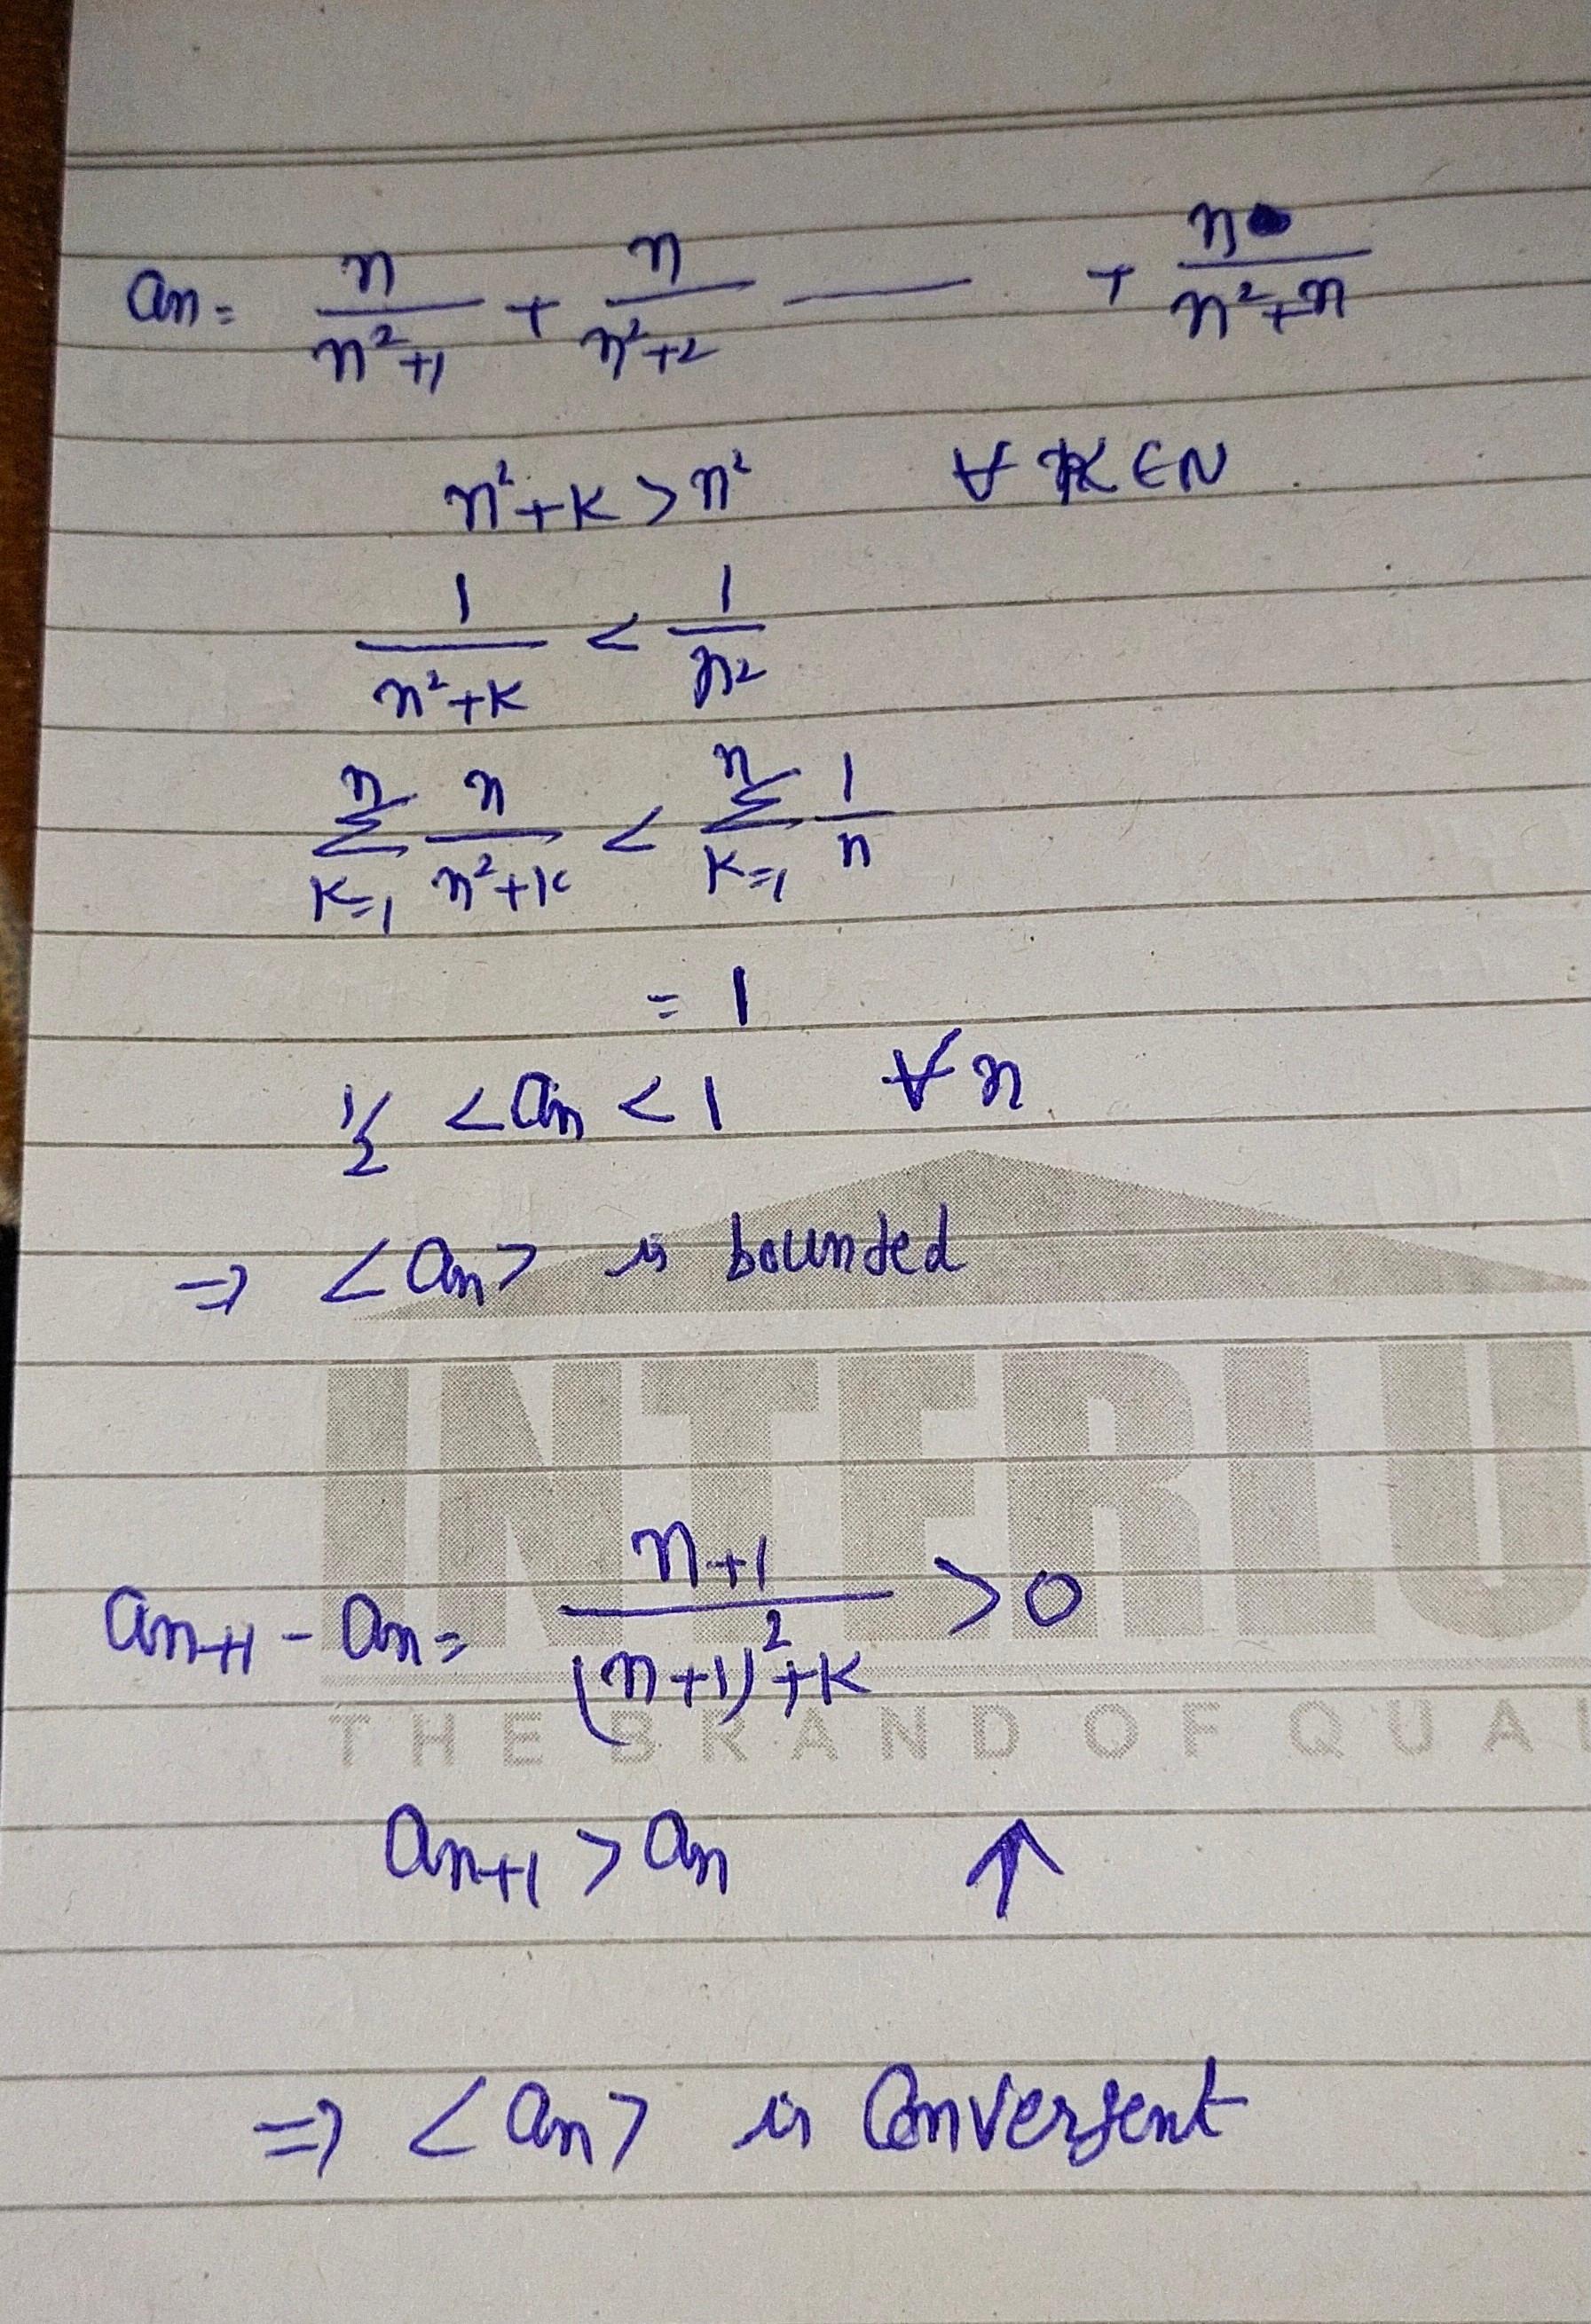 an = n/n²+1 + n/n²+2 —— + n/n²+n
n²+K > n² ∀ K ∈ N
1/n²+K < 1/n²
n∑K=1 n/n²+K < n∑K=1 1/n
= 1
1/2 < an < 1 ∀ n
⇒ <an> is bounded
INTERLU
an+1 - an = n+1/(n+1)²+K > 0
THE BRAND OF QUAL
an+1 > an ↑
⇒ <an> is Convergent